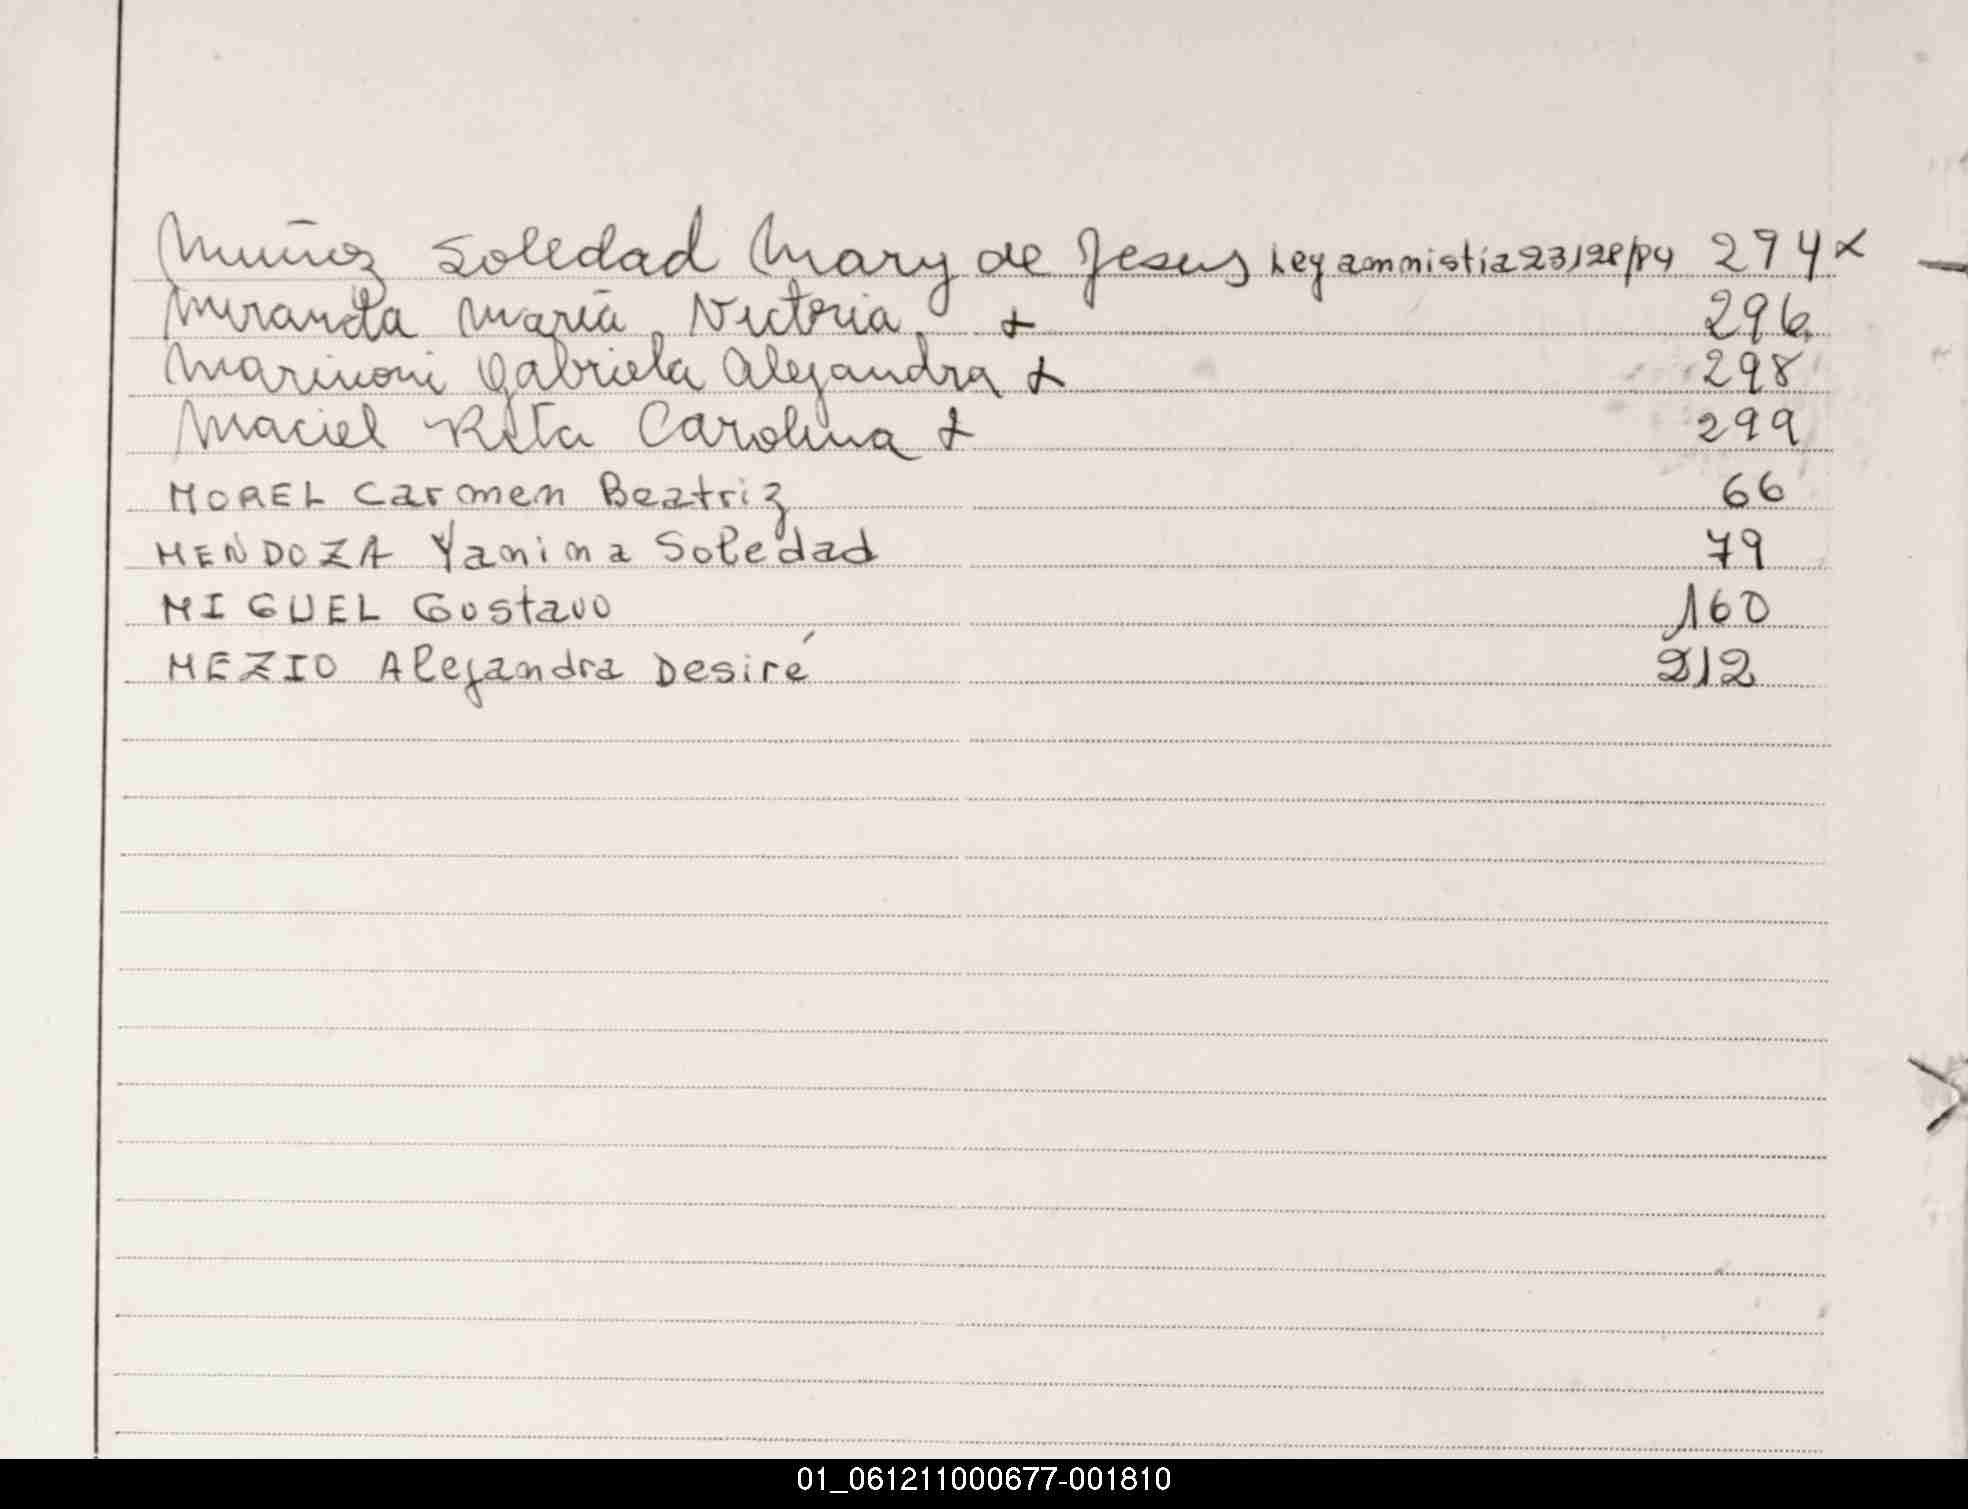 Muñoz Soledad Mary de Jesus Ley ammistia 23128/84 274 x
Miranda María Victoria x 296
Marinoni Gabriela Alejandra x 298
Maciel Rita Carolina x 299
MOREL Carmen Beatriz 66
MENDOZA Yanina Soledad 79
MIGUEL Gustavo 160
MEZIO Alejandra Desiré 212
01_061211000677-001810